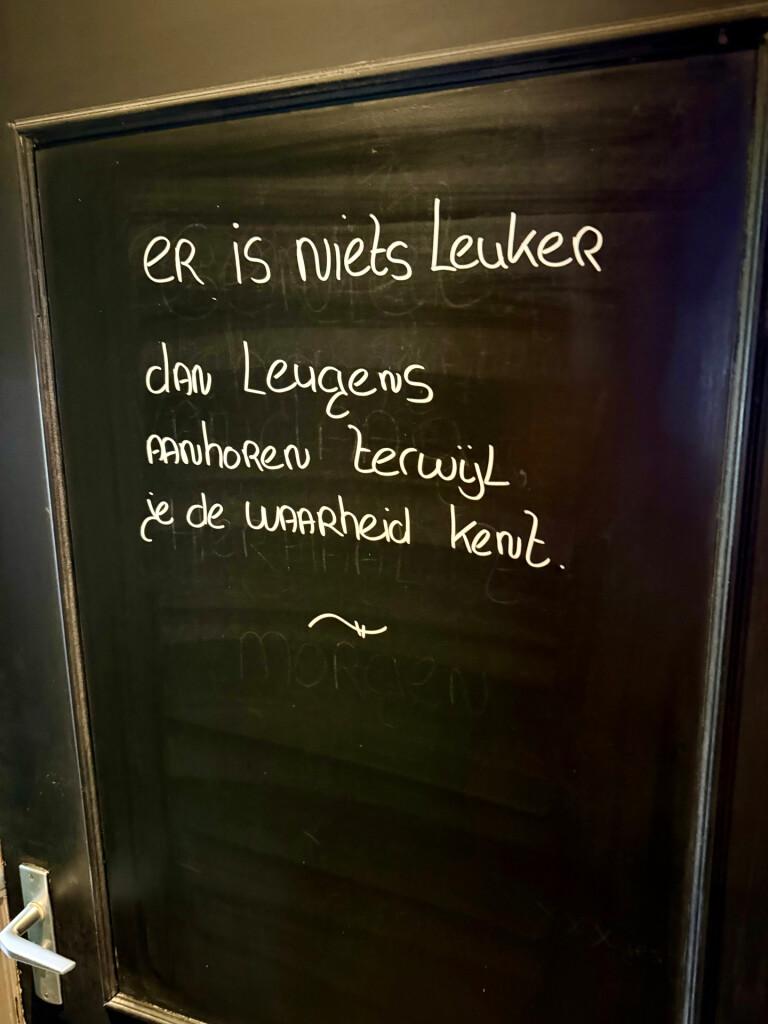 ER is niets Leuker
dAN Leugens
AANhoREN terwijL
je de WAARheid kent.
MORgEN